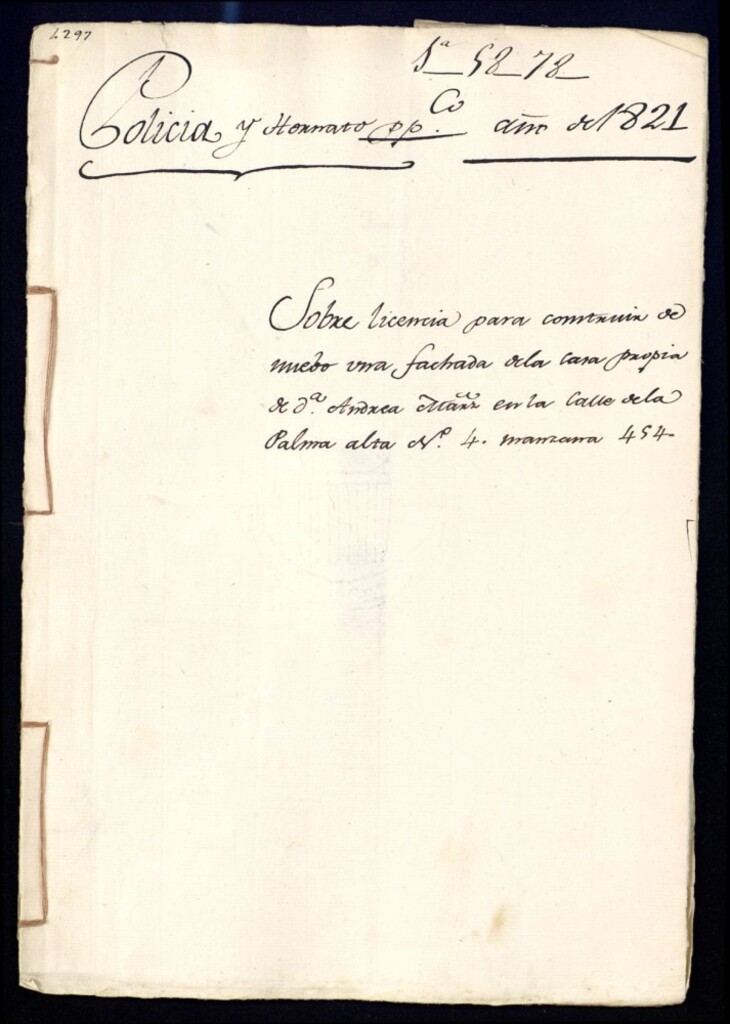 L 297
1ª 58-78
Policia y Hornato pp.Co año de 1821
Sobre licencia para construir de
nuebo una fachada de la casa propia
de dª. Andrea Marnz en la Calle de la
Palma alta Nº. 4. manzana 454.